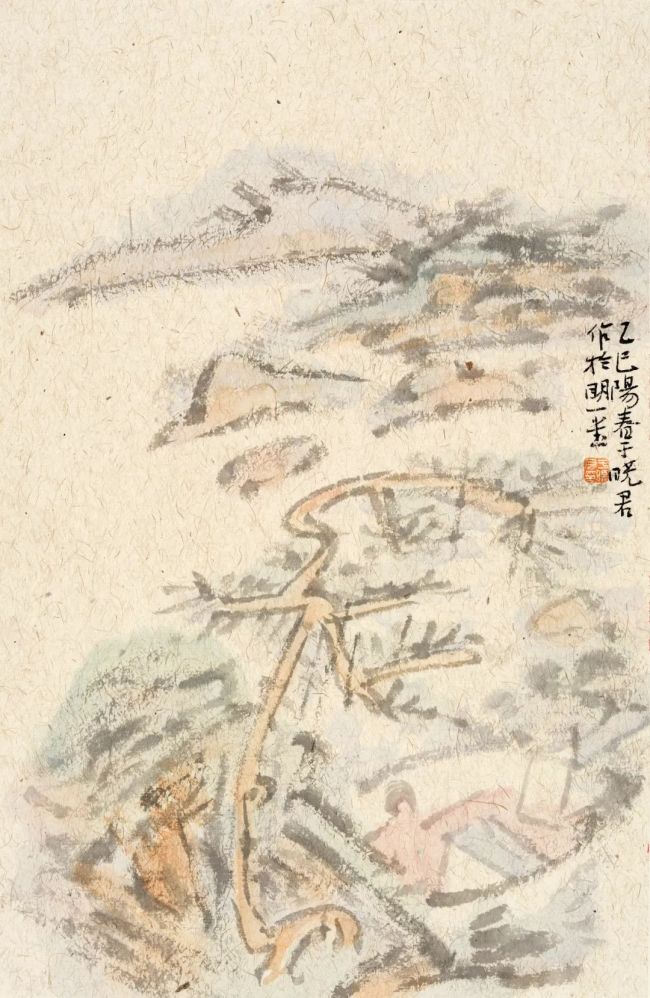 乙巳陽春于晓君
作於明一堂